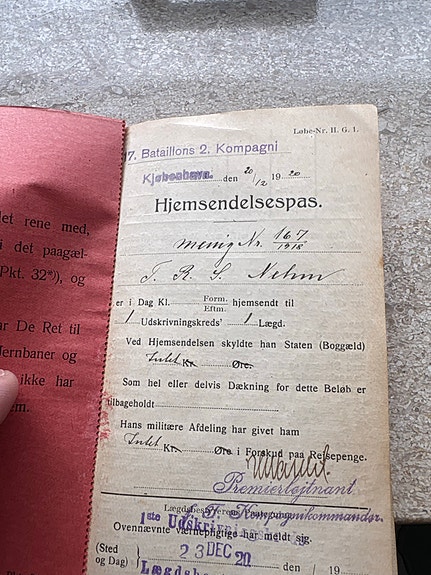 let rene med,
i det paagæl-
Pkt. 32*), og
ar De Ret til
Jernbaner og
ikke har
em.
Løbe-Nr. II. G. 1.
7. Bataillons 2. Kompagni
Kjøbenhavn. den 20/12 1920
Hjemsendelsespas.
menig Nr. 167/1918
T. R. S. Nehm
er i Dag Kl. Form. Eftm. hjemsendt til
1 Udskrivningskreds' 1 Lægd.
Ved Hjemsendelsen skyldte han Staten (Boggæld)
Intet Kr. Øre.
Som hel eller delvis Dækning for dette Beløb er
tilbageholdt
Hans militære Afdeling har givet ham
Intet Kr. Øre i Forskud paa Rejsepenge.
Premierløjtnant
Kompagnikommandør.
1ste Udskrivnings
Ovennævnte værnepligtige har meldt sig.
(Sted
og Dag)
23 DEC 20
/ 19
Lægdsbe